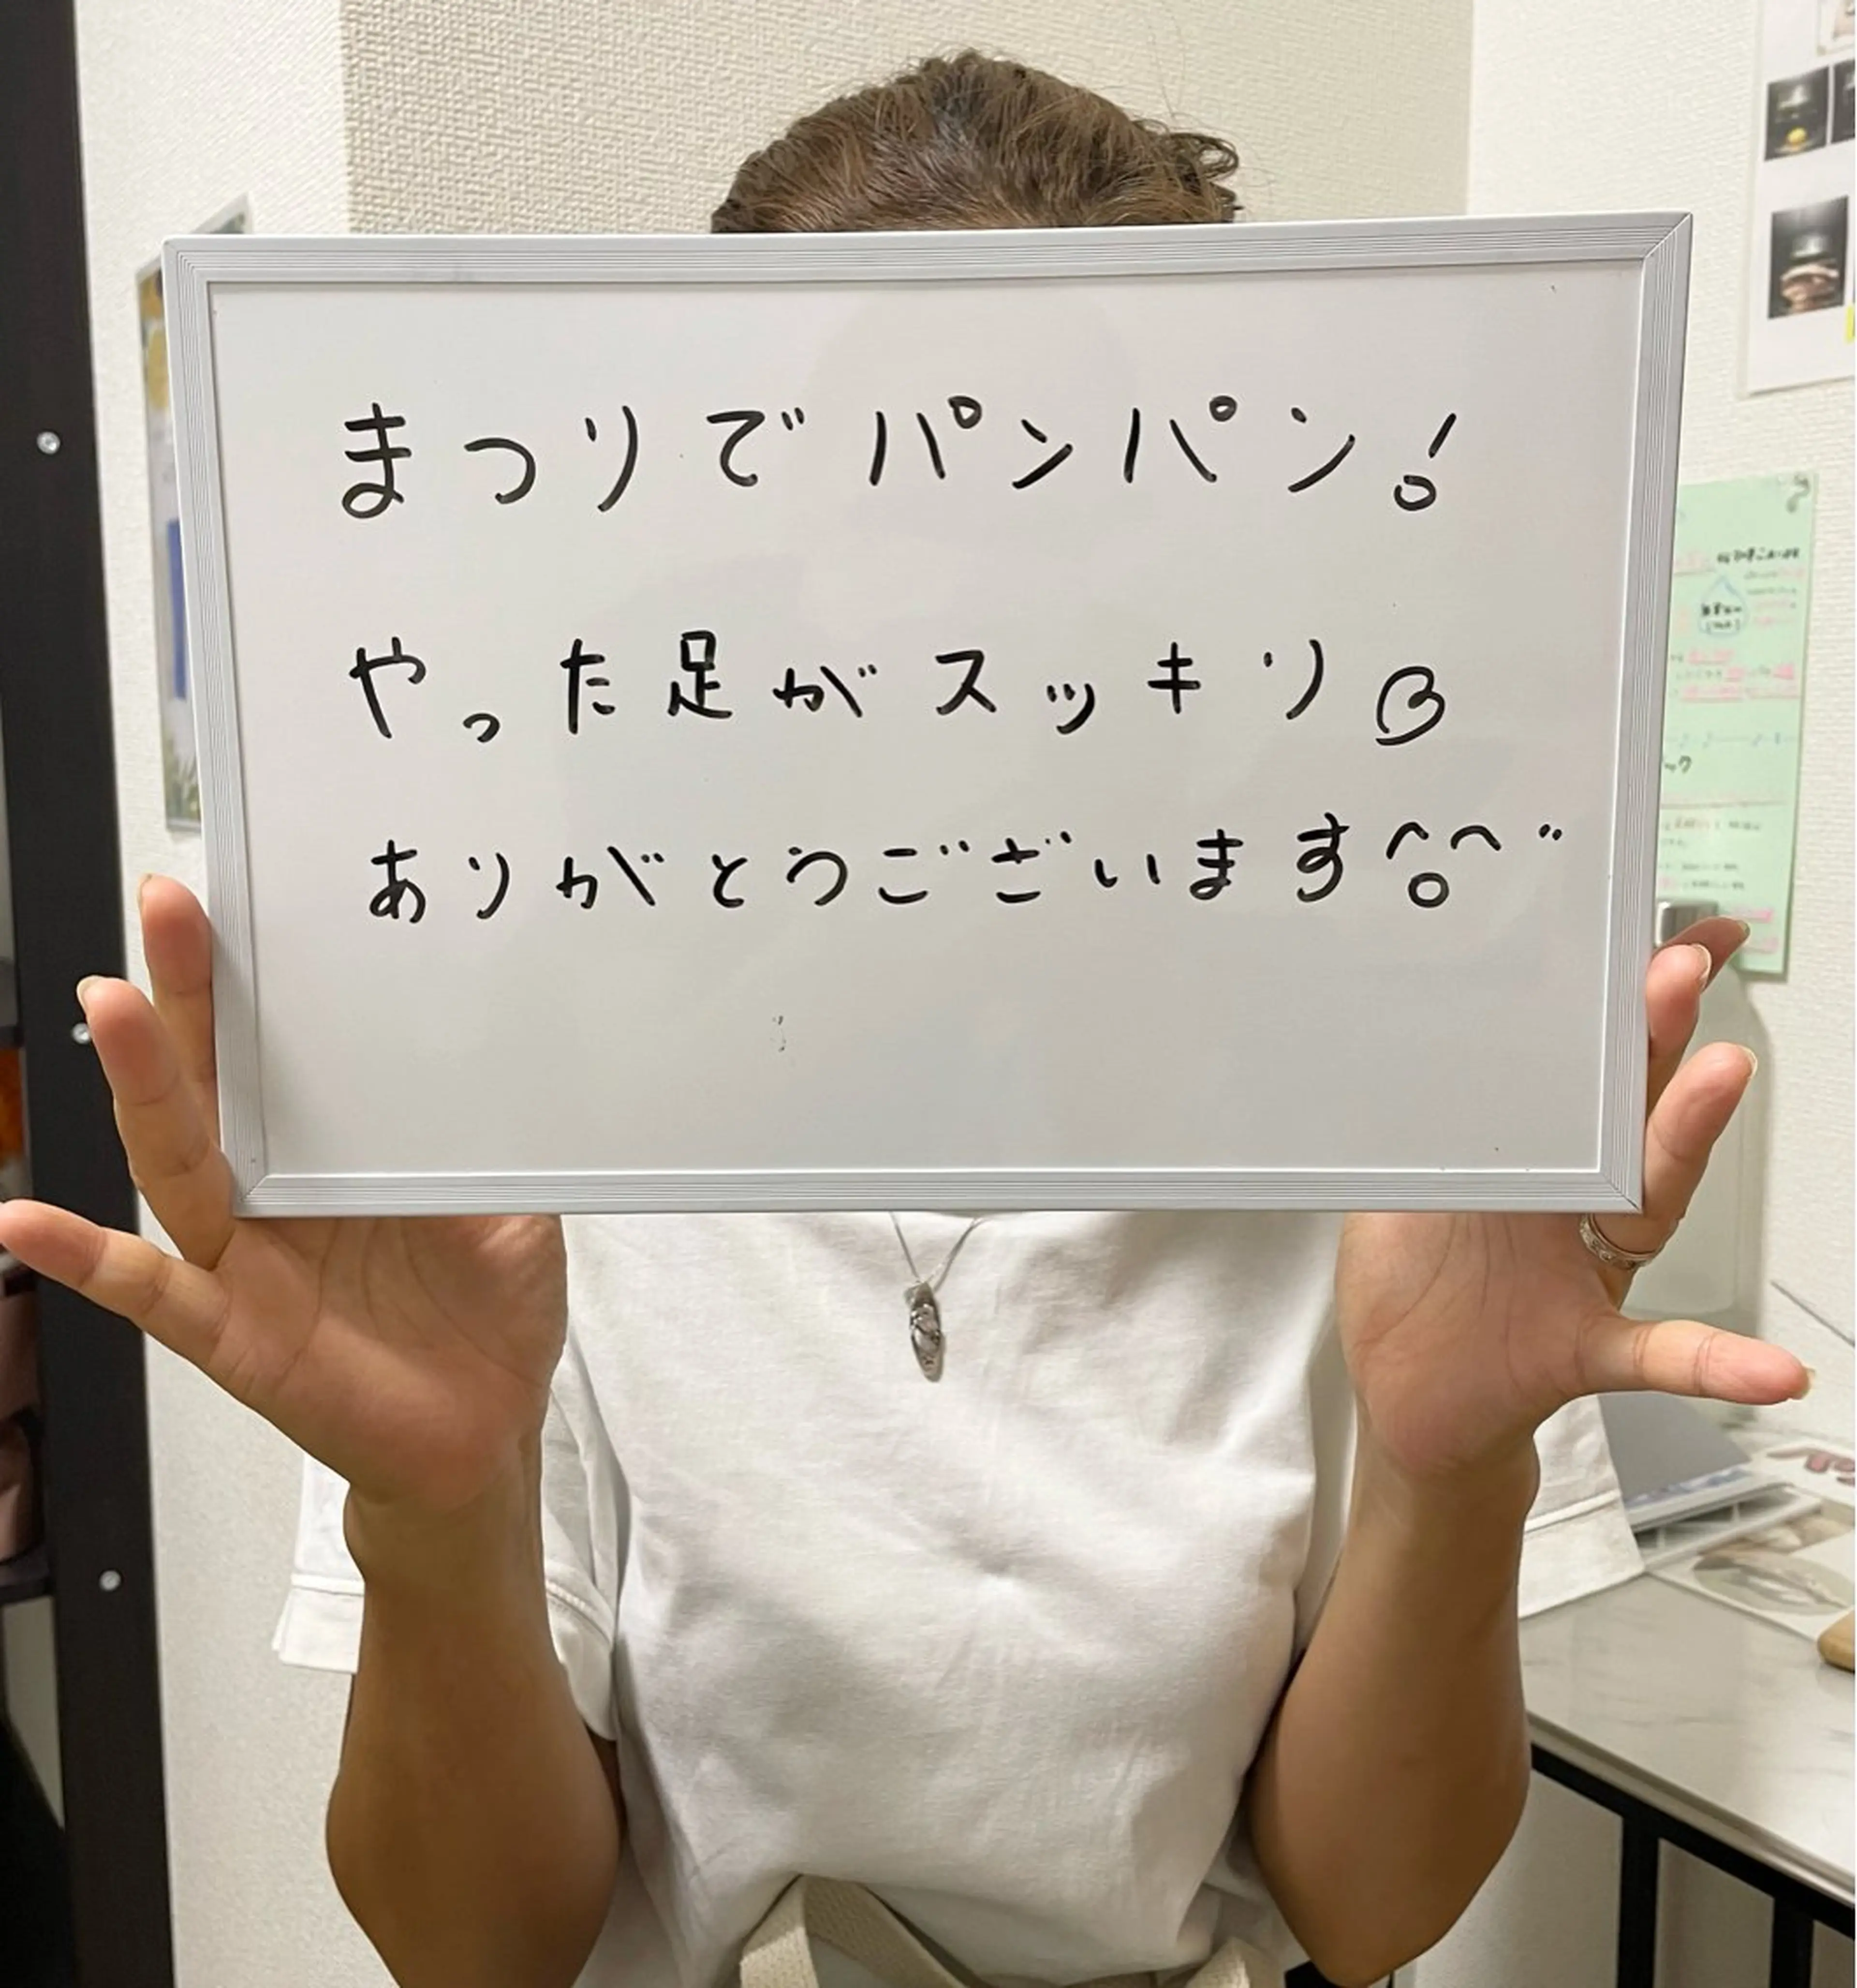 まつりでパンパン!
やった足がスッキリ
ありがとうございます^o^"